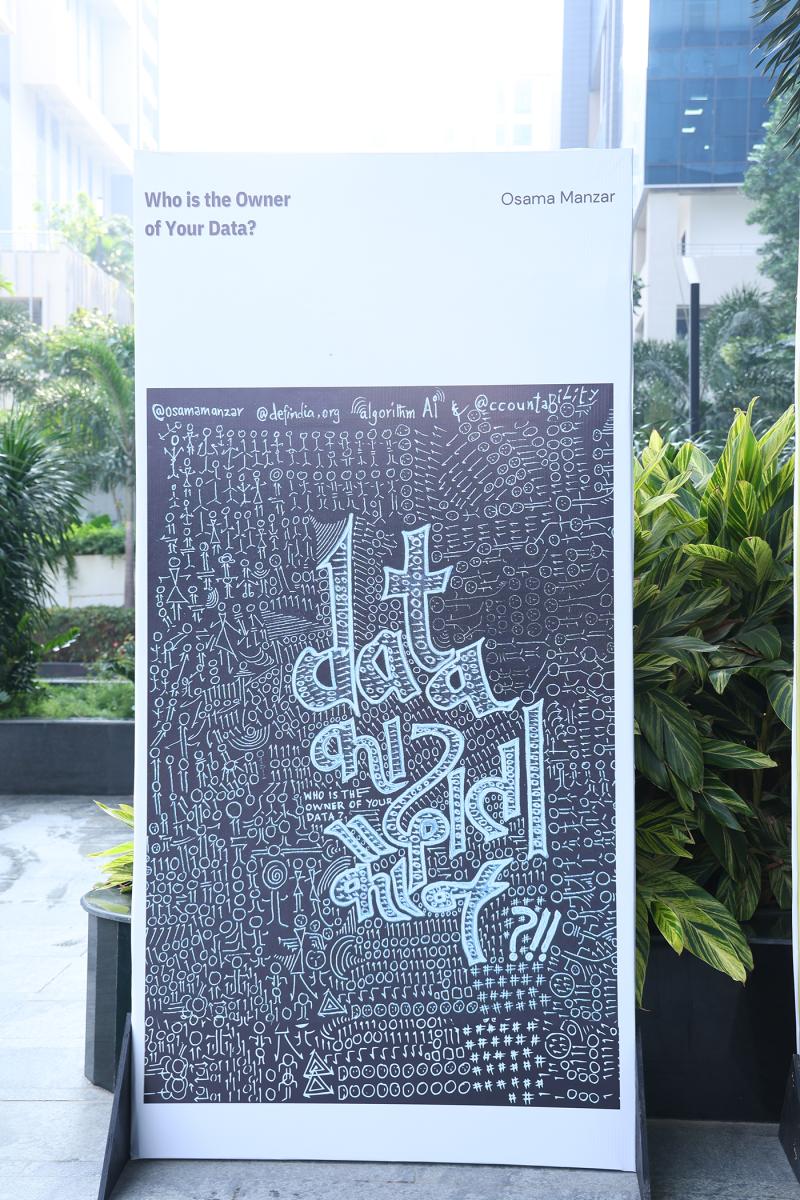 Who is the Owner
of Your Data?
Osama Manzar
@osamamanzar @defindia.org "algorithm AI" & @ccountaBiLiTy
data
का
WHO IS THE
OWNER OF YOUR
DATA?
?!!